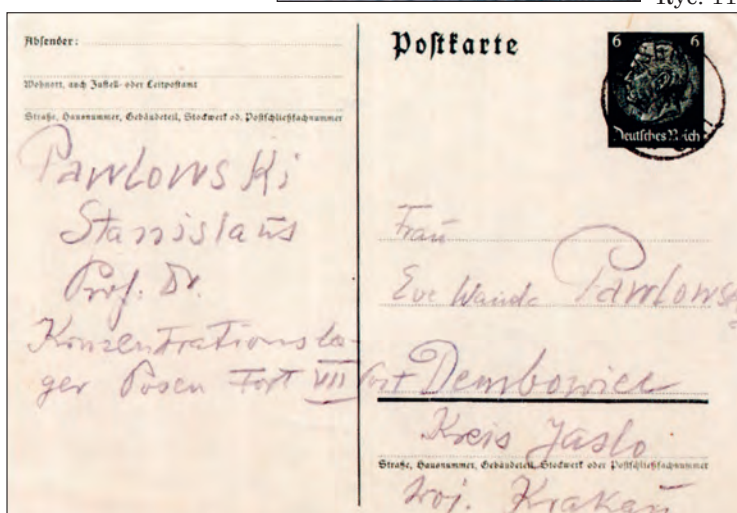 Ryc. 11
Absender:
Wohnort, auch Zustell- oder Leitpostamt
Straße, Hausnummer, Gebäudeteil, Stockwerk od. Postschließfachnummer
Pawlowski
Stanislaus
Prof. Dr.
Konzentrationsla-
ger Posen Fort VII
Postkarte
6 6
Deutsches Reich
Frau
Eve Wanda Pawlowsk
Post Dembowiec
Kreis Jaslo
Straße, Hausnummer, Gebäudeteil, Stockwerk oder Postschließfachnummer
Woj. Krakau